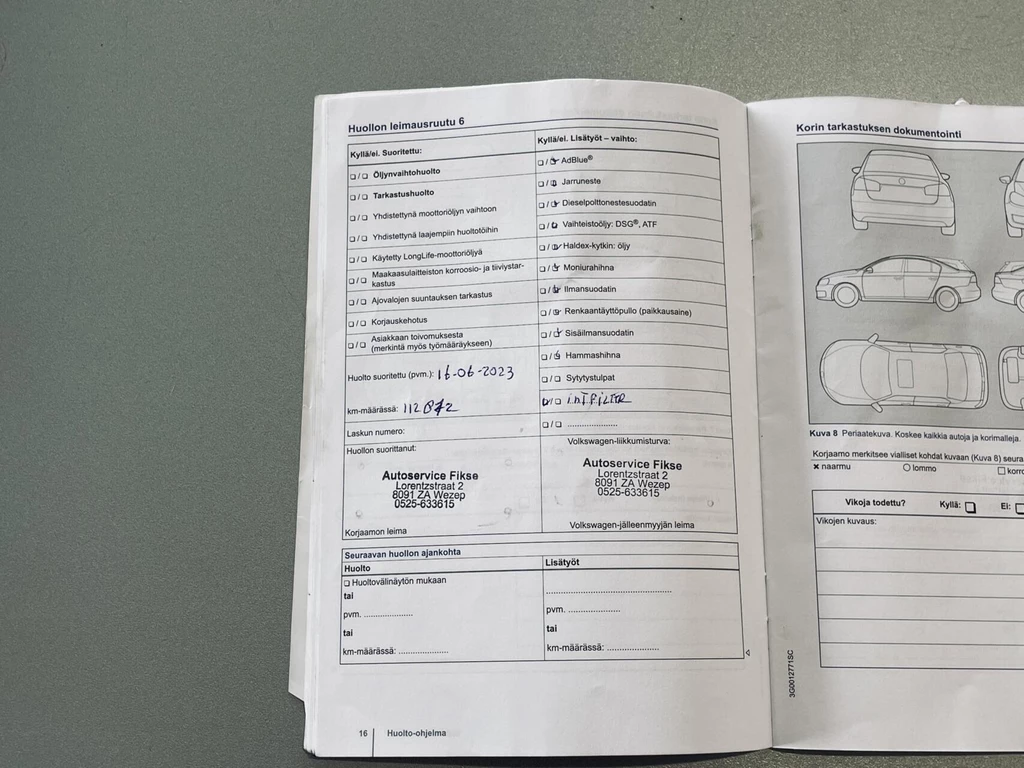 Huollon leimausruutu 6
Kyllä/ei. Suoritettu:
❏ / ❏ Öljynvaihtohuolto
❏ / ❏ Tarkastushuolto
❏ / ❏ Yhdistettynä moottoriöljyn vaihtoon
❏ / ❏ Yhdistettynä laajempiin huoltotöihin
❏ / ❏ Käytetty LongLife-moottoriöljyä
❏ / ❏ Maakaasulaitteiston korroosio- ja tiiviystar-
kastus
❏ / ❏ Ajovalojen suuntauksen tarkastus
❏ / ❏ Korjauskehotus
❏ / ❏ Asiakkaan toivomuksesta
(merkintä myös työmääräykseen)
Huolto suoritettu (pvm.): 16-06-2023
km-määrässä: 112872
Laskun numero:
Huollon suorittanut:
Autoservice Fikse
Lorentzstraat 2
8091 ZA Wezep
0525-633615
Korjaamon leima
Kyllä/ei. Lisätyöt – vaihto:
❏ / ❏ AdBlue®
❏ / ❏ Jarruneste
❏ / ❏ Dieselpolttonestesuodatin
❏ / ❏ Vaihteistoöljy: DSG®, ATF
❏ / ❏ Haldex-kytkin: öljy
❏ / ❏ Moniurahihna
❏ / ❏ Ilmansuodatin
❏ / ❏ Renkaantäyttöpullo (paikkausaine)
❏ / ❏ Sisäilmansuodatin
❏ / ❏ Hammashihna
❏ / ❏ Sytytystulpat
❏ / ❏ intfilter
❏ / ❏ .....................
Volkswagen-liikkumisturva:
Autoservice Fikse
Lorentzstraat 2
8091 ZA Wezep
0525-633615
Volkswagen-jälleenmyyjän leima
Seuraavan huollon ajankohta
Huolto
❏ Huoltovälinäytön mukaan
tai
pvm. .....................
tai
km-määrässä: .....................
Lisätyöt
.....................
pvm. .....................
tai
km-määrässä: .....................
16 Huolto-ohjelma
Korin tarkastuksen dokumentointi
Kuva 8 Periaatekuva. Koskee kaikkia autoja ja korimalleja.
Korjaamo merkitsee vialliset kohdat kuvaan (Kuva 8) seura
× naarmu ○ lommo ❏ korro
Vikoja todettu? Kyllä: ❏ Ei: ❏
Vikojen kuvaus:
3G0012771SC